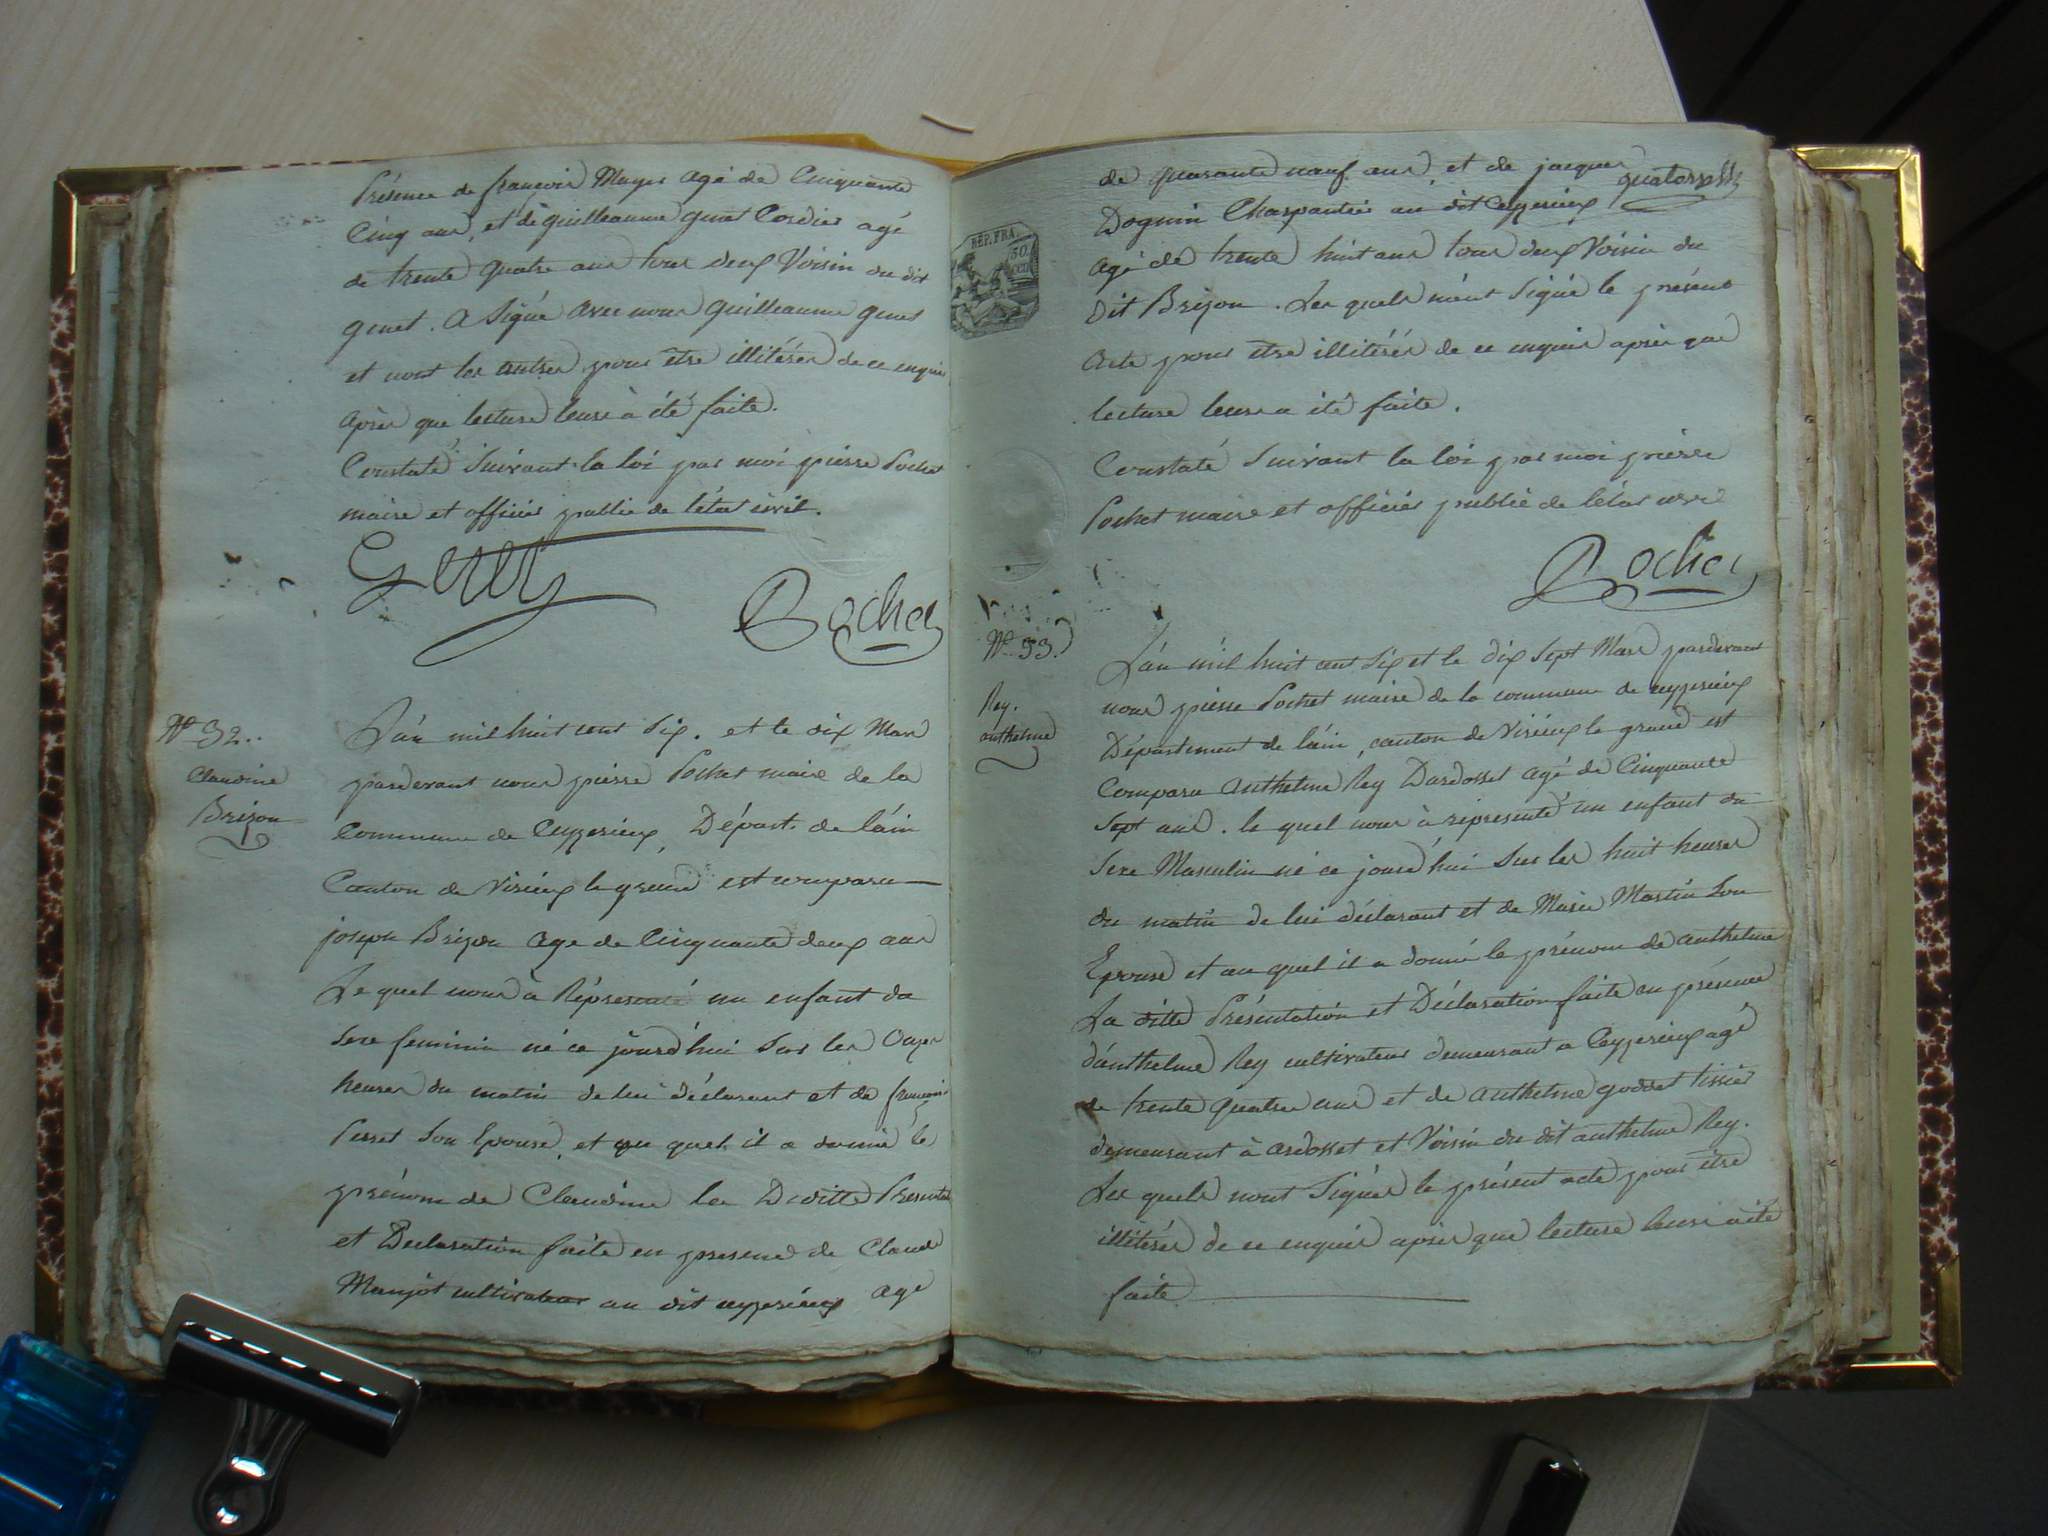 Présence de françois Muyer agé de Cinquante
Cinq ans, et de guilleaume genet Cordier agé
de trente quatre ans tous deux Voisin du dit
genet. A Signé avec nous guilleaume genet
et nont les autres pour être illitérés de ce enquis
après que lecture leurs à été faite.
Constaté Suivant la loi par moi pierre Pochet
maire et officier public de l'état civil.
Genet
Pochet
N° 32.
Claudine
Brizon
L'an mil huit cent Six. et le dix Mars
pardevant nous pierre Pochet maire de la
Commune de Ceyzerieux, Départ. de l'áin
Canton de Virieux le grand est comparu
joseph Brizon age de Cinquante deux ans
Le quel nous à Réprésenté un enfant du
Sexe feminin né ce jourd'hui Sur les Onzes
heures du matin de lui déclarant et de françoise
Perret Son Epouse, et au quel il a donné le
prénom de Claudine la Ditte Presentat
et Declaration faite en presence de Claude
Manjot cultivateur au dit ceyzerieux age
quatorze
de quarante neuf ans, et de jacques
Doguin Charpantier au dit Ceyzerieux
agé de trente huit ans tous deux Voisin du
dit Brizon. Les quels n'ont Signé le présent
Acte pour être illitérés de ce enquis après que
lecture leurs a été faite.
Constaté Suivant la loi par moi pierre
Pochet maire et officier public de l'état civil
Pochet
REP. FRA.
50
cen
N° 33.
Rey.
anthelme
L'an mil huit cent Six et le dix Sept Mars pardevant
nous pierre Pochet maire de la commune de ceyzerieux
Département de l'áin, canton de Virieux le grand est
Comparu Anthelme Rey Dardosset agé de Cinquante
Sept ans. le quel nous à répresenté un enfant du
Sexe Masculin né ce jourd'hui Sur les huit heures
du matin de lui déclarant et de Marie Martin Son
Epouse et au quel il a donné le prénom de anthelme
La ditte Présentation et Déclaration faite en présence
d'anthelme Rey cultivateur demeurant a Ceyzerieux agé
de trente quatre ans et de anthelme goddet tissier
demeurant à ardosset et Voisin du dit anthelme Rey.
Les quels nont Signés le présent acte pour être
illitérés de ce enquis après que lecture leurs à été
faite